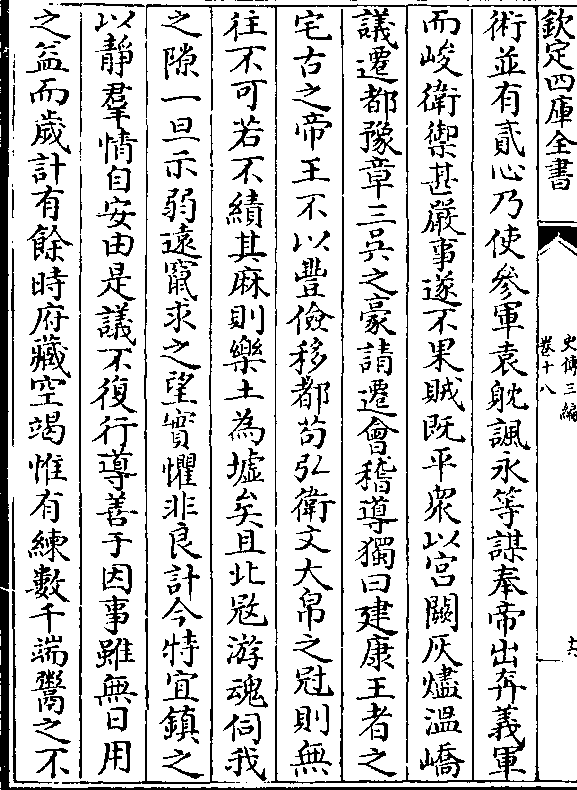 欽定四庫全書
史傳三編
卷十八
術並有貳心乃使參軍袁躭諷永等謀奉帝出奔義軍
而峻衛禦甚嚴事遂不果賊既平衆以宫闕灰燼溫嶠
議遷都豫章三吳之豪請遷會稽導獨曰建康王者之
宅古之帝王不以豐儉移都苟弘衛文大帛之冠則無
往不可若不績其麻則樂土為墟矣且北寇游魂伺我
之隙一旦示弱遠竄求之望實懼非良計今特宜鎮之
以靜羣情自安由是議不復行導善于因事雖無日用
之益而歲計有餘時府藏空竭惟有練數千端鬻之不